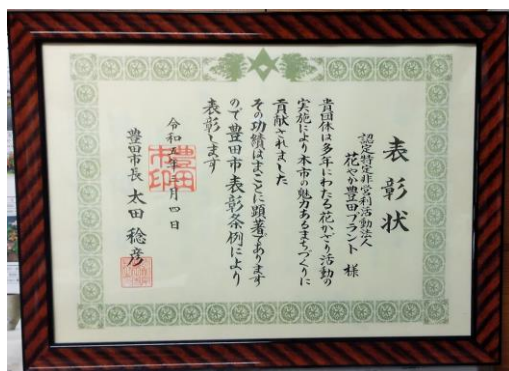 表彰状
認定特定非営利活動法人
花やか豊田プラント 様
貴団体は多年にわたる花かざり活動の
実施により本市の魅力あるまちづくりに
貢献されました
その功績はまことに顕著であります
ので豊田市表彰条例により
表彰します
令和五年三月四日
豊田市長 太田 稔彦
豊田市印